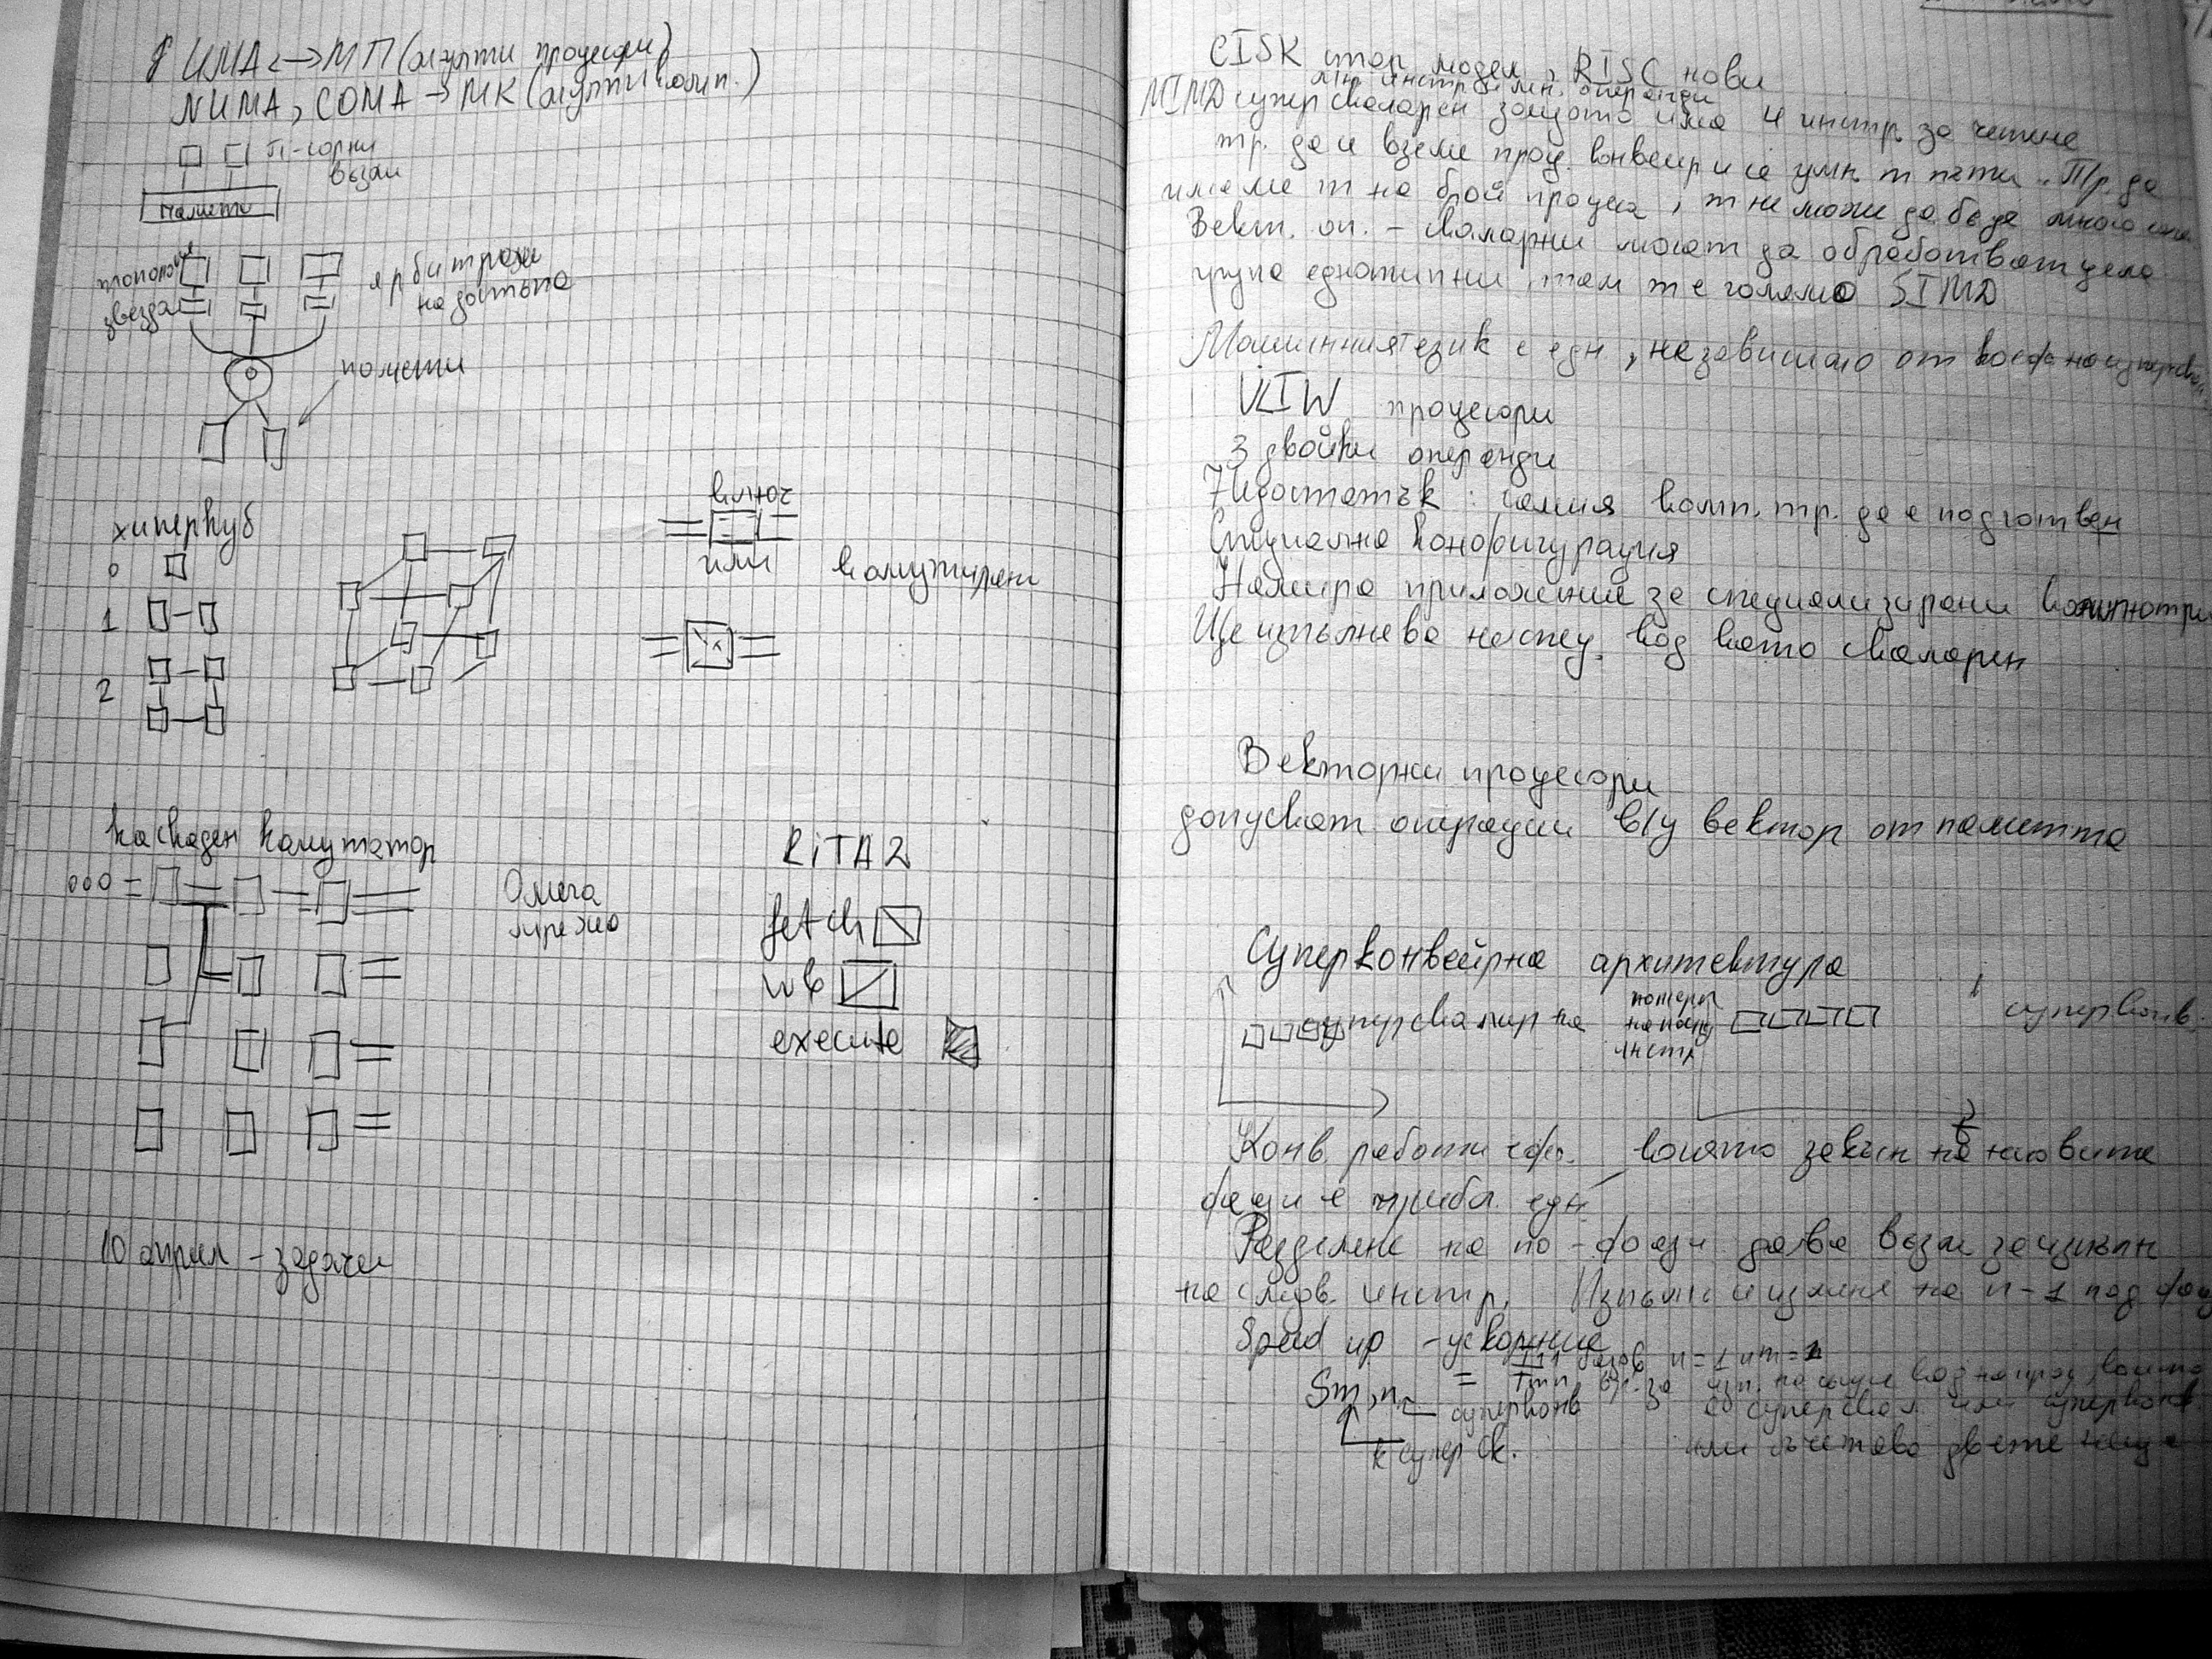 UMA <-> МП (мулти процесори)
NUMA, COMA -> МК (мултикомп.)
възли
памети
топология
звезда
арбитрази
на достъпа
памети
хиперкуб
0
1
2
ключ
или
комутирани
каскаден комутатор
000
Омега
мрежа
RiTA 2
fetch
wb
execute
10 април - задачи
CISK стар модел, RISC нови
мн. инстр. и мн. операнди
MIMD суперскаларен защото има 4 инстр. за четене
тр. да и вземе проц. конвейр и се умн. m пъти. Тр. да
имаме m на брой процеса, m не може да бъде много
Вект. оп. - скаларни могат да обработват цяла
група еднотипни, там m е голямо SIMD
Машинният език е едн, независимо от
VLIW процесори
3 двойки операнди
Недостатък: самия комп. тр. да е подготвен
Специална конфигурация
Намира приложение за специализирани компютри
Ще изпълнява неспец. код като скаларен
Векторни процесори
допускат операции в/у вектор от паметта
Суперконвейрна архитектура
суперскаларна
номера
на
инстр
суперконв.
Конв. работи еф. когато закъсн на неговите
фази е прибл. едн
Разделяне на по-фази дава възм за изпълн
на след. инстр. на n-1 под фаз
Speed up - ускорение
базов n=1 и m=1
Sm,n =
суперконв
суперскал. или суперконв.
к супер ск.
или съчетава двете неща